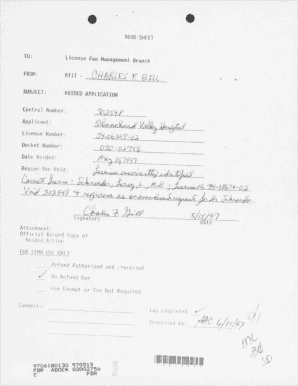 VOID SHEET
TO: License Fee Management Branch
FROM: RIII - CHARLES F. GILL
SUBJECT: VOIDED APPLICATION
Control Number: 302548
Applicant: Blanchard Valley Hospital
License Number: 34-06345-02
Docket Number: 030-02756
Date Voided: May 15 1997
Reason for Void: License incorrectly identified
Correct license: Schroeder, M.D., License No. 34-
Void 302548 & as an amendment request for Dr. Schroeder
Charles F. Gill 5/15/97
Signature Date
Attachment:
Official Record Copy of
Voided Action
FOR LFMB USE ONLY
Refund Authorized and processed
✓ No Refund Due
Fee Exempt or Fee Not Required
Comments: Log completed ✓
Processed by: 6/11/97
9706180130 970515
PDR ADOCK 03002756
C PDR